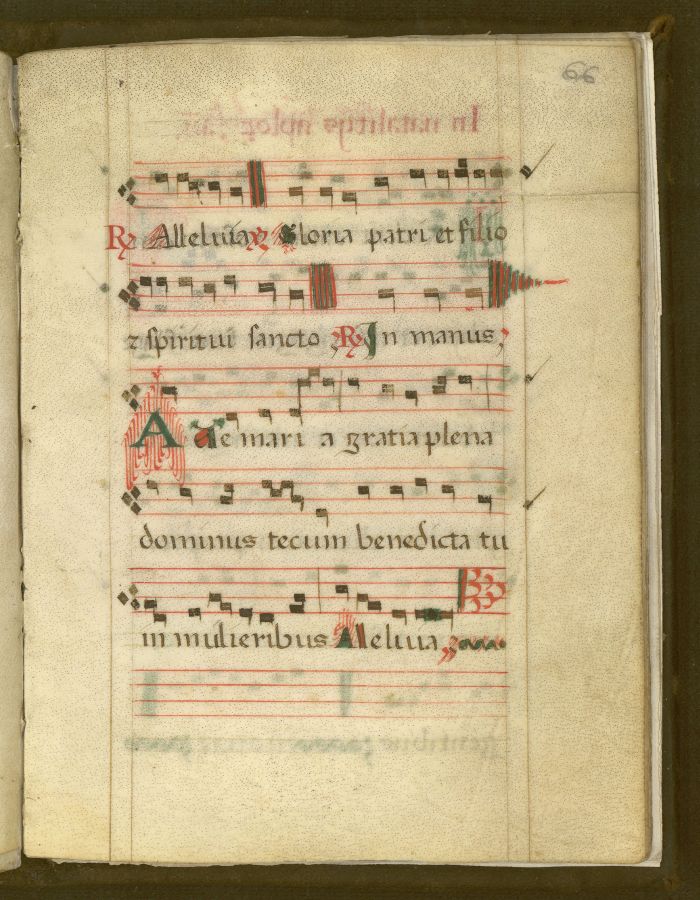 66
℟ Alleluia ℣ Gloria patri et filio
⁊ spiritui sancto ℟ In manus
Aue mari a gratia plena
dominus tecum benedicta tu
in mulieribus Alleluia